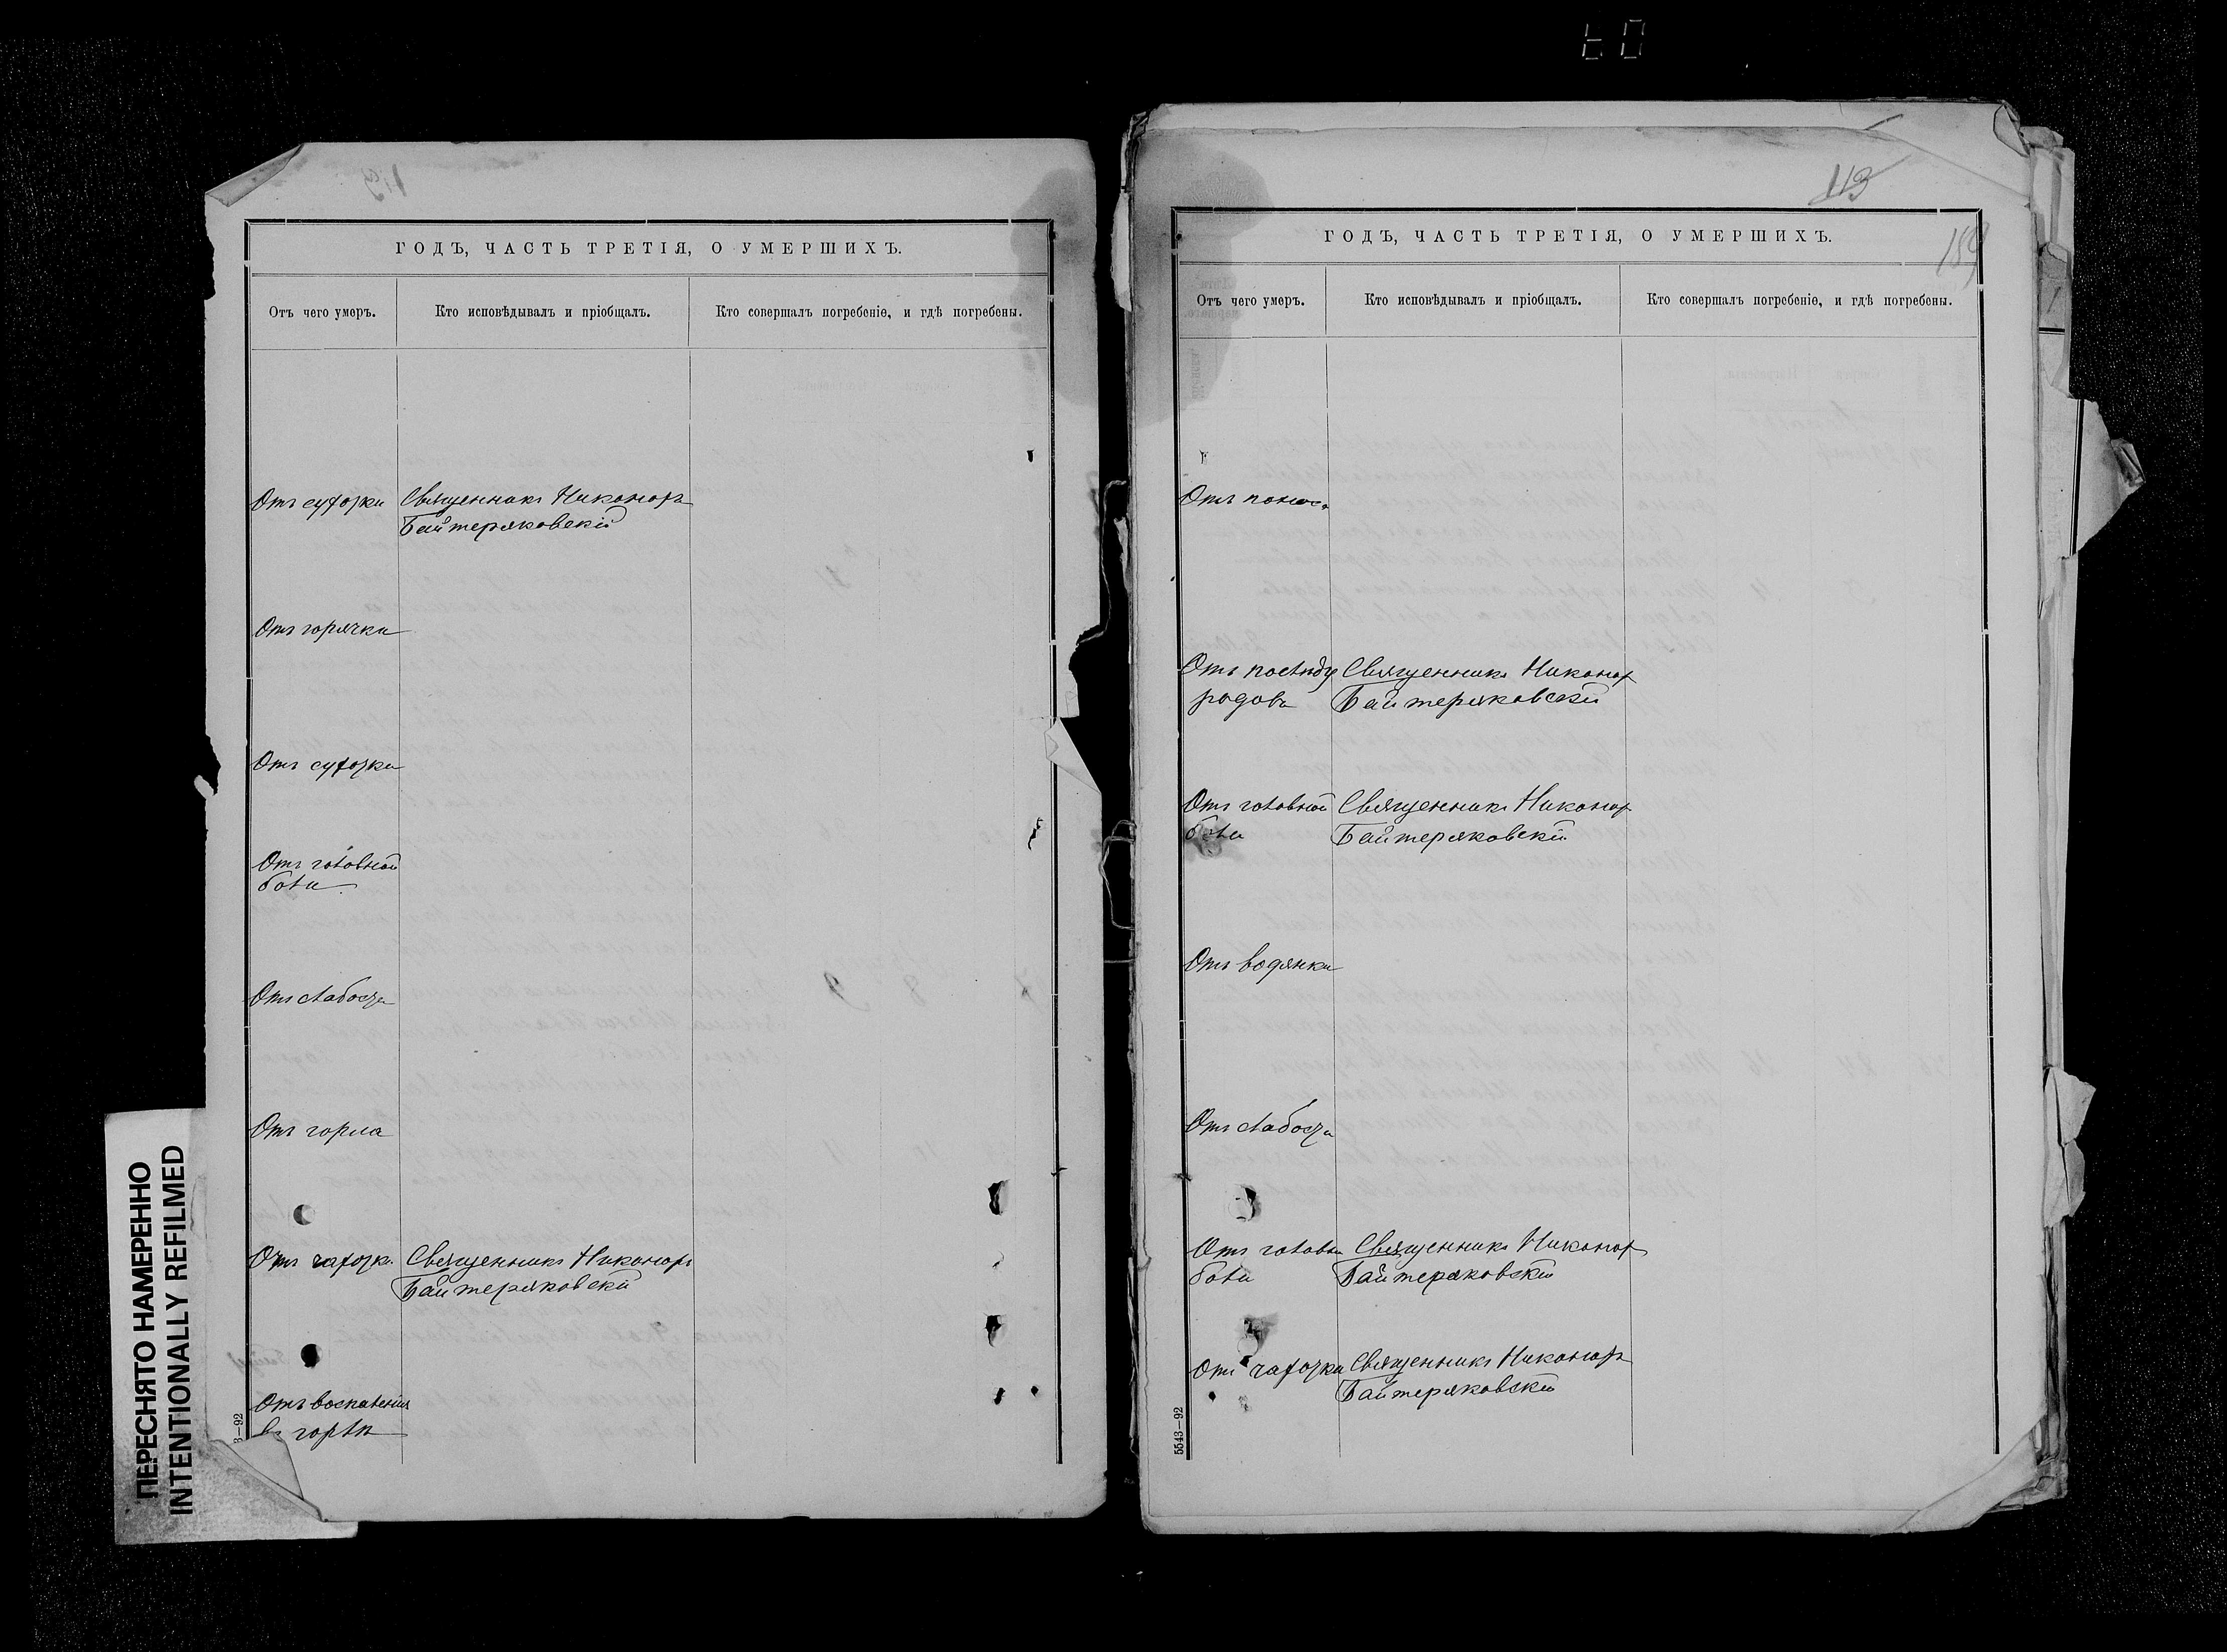 ГОДЪ, ЧАСТЬ ТРЕТІЯ, О УМЕРШИХЪ.
Отъ чего умеръ.
Кто исповѣдывалъ и пріобщалъ.
Кто совершалъ погребеніе, и гдѣ погребены.
Отъ судорги Священникъ Никаноръ
Байтеряковскій
Отъ горячки
Отъ судорги
Отъ головной
боли
Отъ слабости
Отъ горла
Отъ чахотки Священникъ Никаноръ
Байтеряковскій
Отъ воспаленія
въ горлѣ
3—92
ПЕРЕСНЯТО НАМЕРЕННО
INTENTIONALLY REFILMED
113
189
ГОДЪ, ЧАСТЬ ТРЕТІЯ, О УМЕРШИХЪ.
Отъ чего умеръ.
Кто исповѣдывалъ и пріобщалъ.
Кто совершалъ погребеніе, и гдѣ погребены.
Отъ поноса
Отъ послѣду Священникъ Никаноръ
родовъ Байтеряковскій
Отъ головной Священникъ Никаноръ
боли Байтеряковскій
Отъ водянки
Отъ слабости
Отъ головн Священникъ Никаноръ
боли Байтеряковскій
Отъ чахотки Священникъ Никаноръ
Байтеряковскій
5543—92